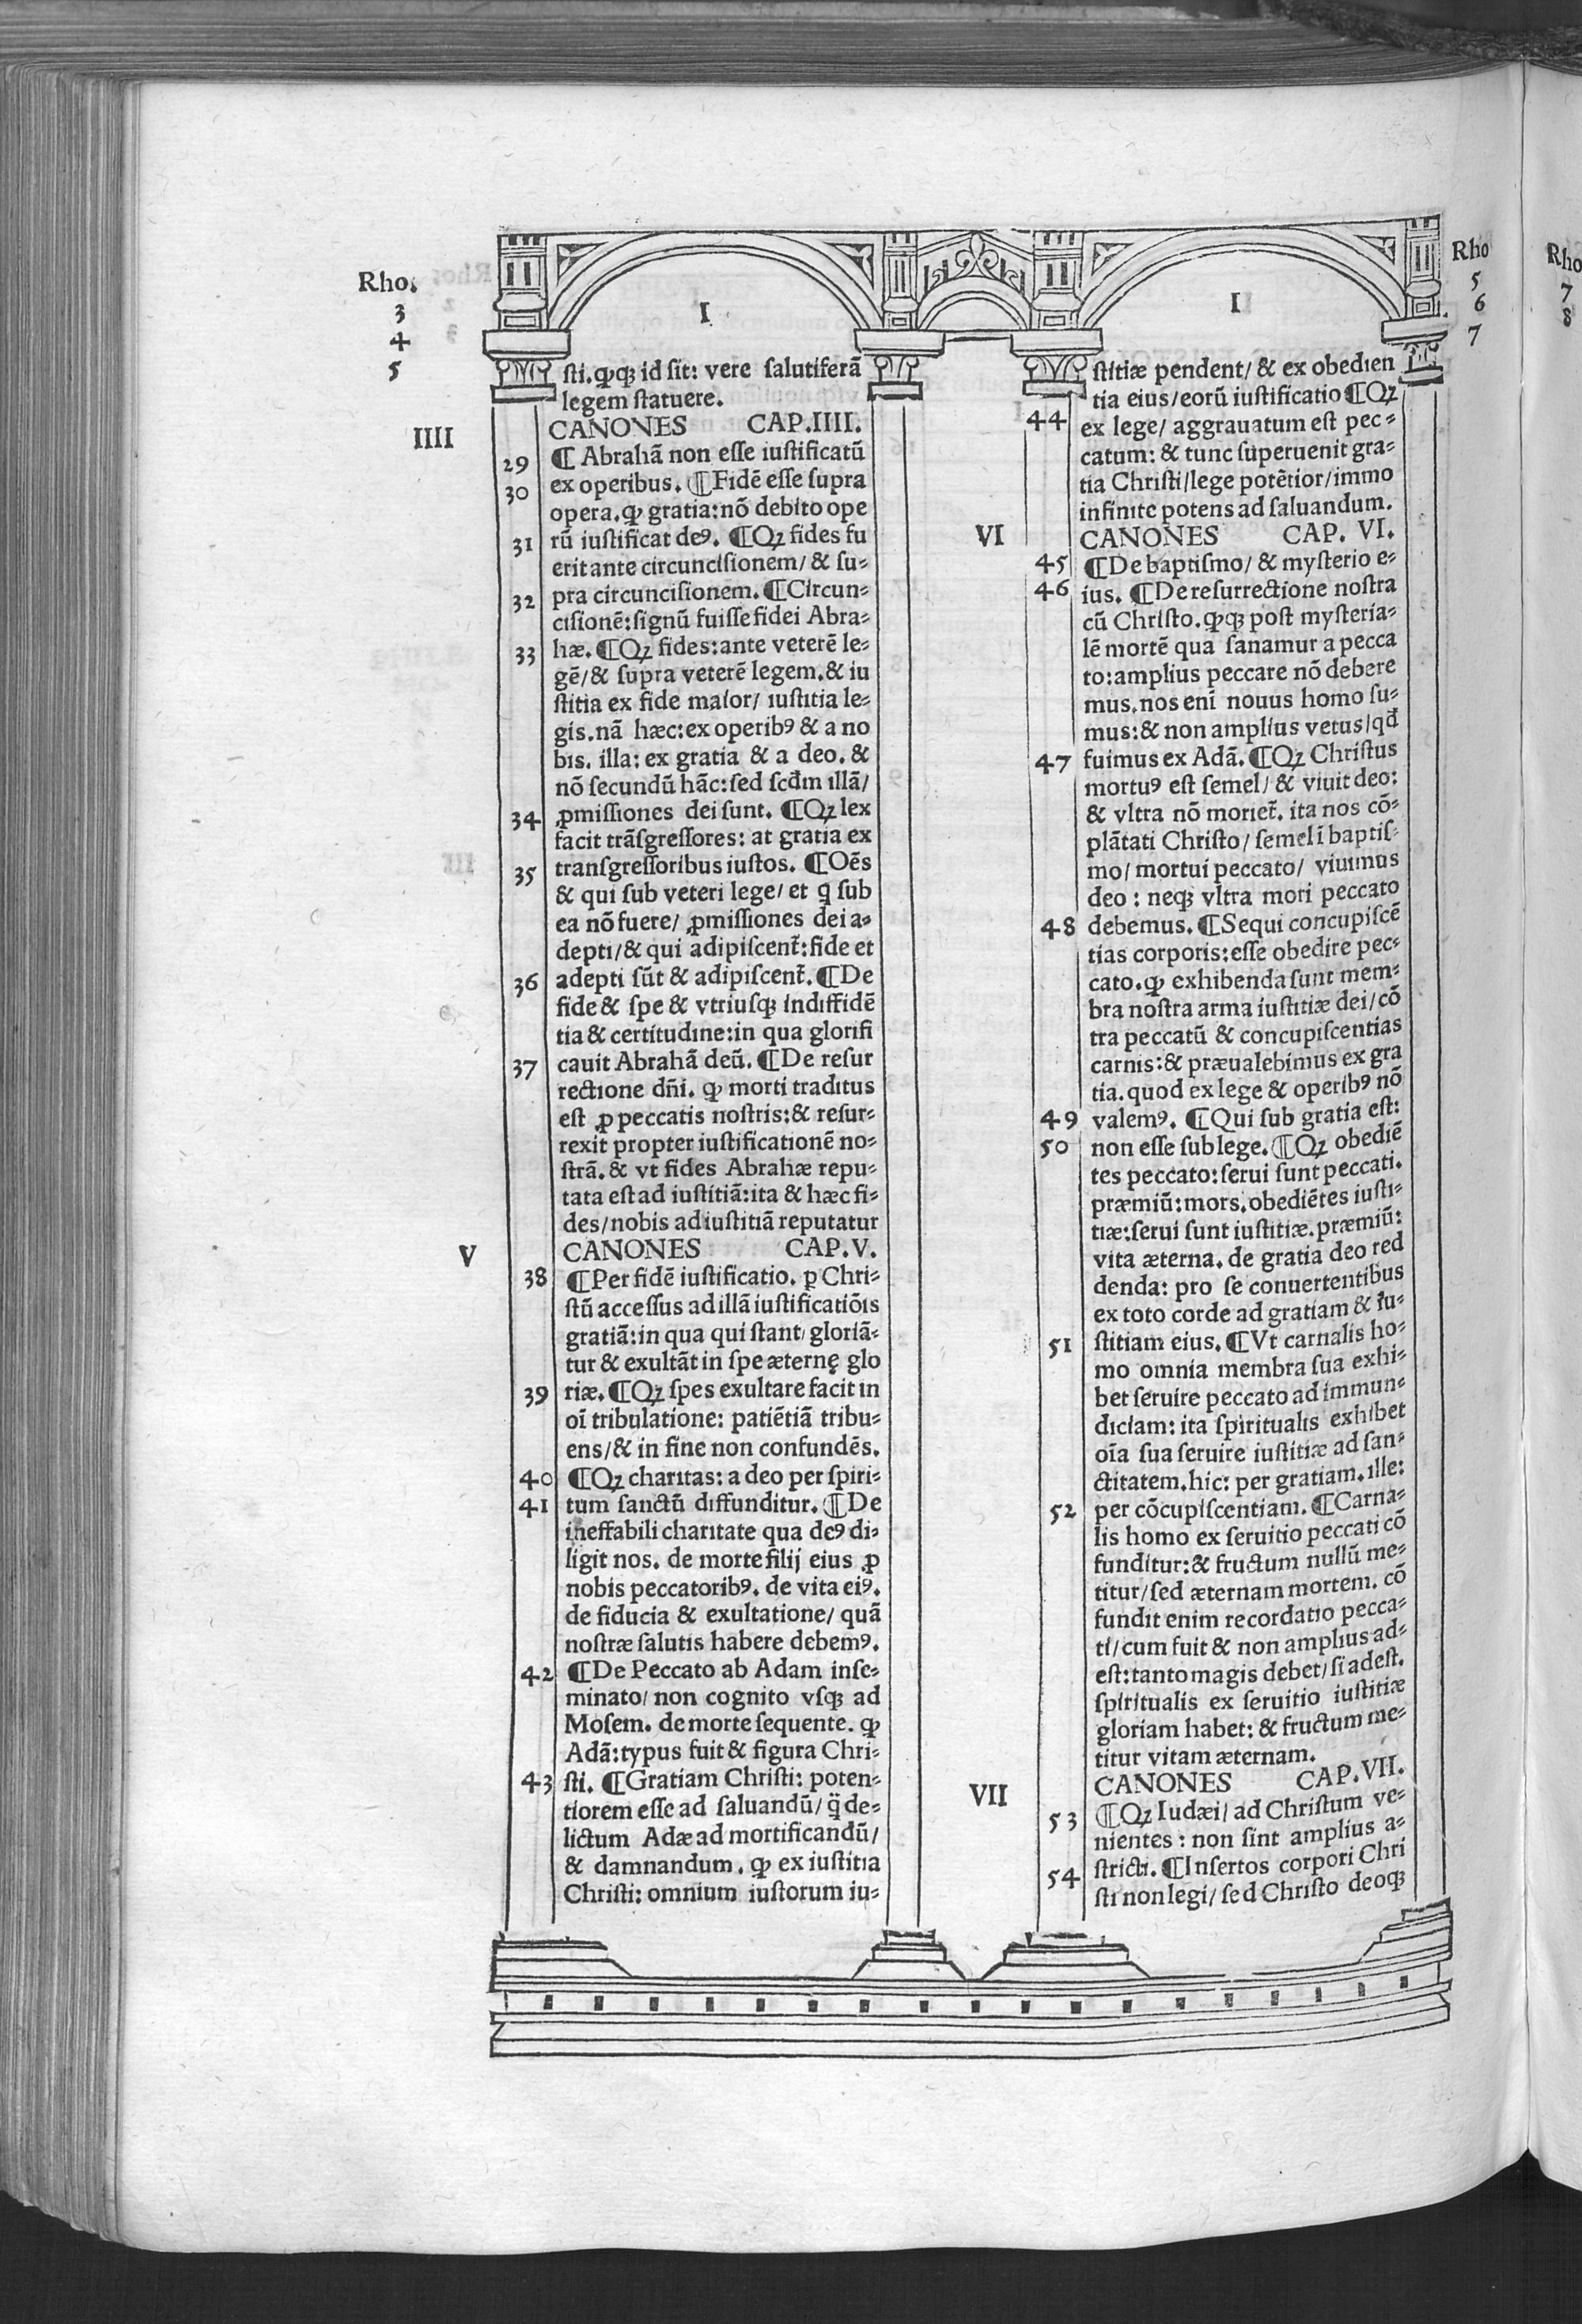 Rho.
3
4
5
I
sti. ꝙqꝫ id sit: vere salutiferā
legem statuere.
IIII CANONES CAP.IIII.
29 ¶ Abrahā non esse iustificatū
30 ex operibus. ¶Fidē esse supra
opera. ꝙ gratia: nō debito ope
31 rū iustificat deꝰ. ¶Qꝫ fides fu
erit ante circuncisionem/ & su-
32 pra circuncisionem. ¶Circun-
cisionē: signū fuisse fidei Abra-
33 hæ. ¶Qꝫ fides: ante veterē le-
gē/ & supra veterē legem. & iu
stitia ex fide maior/ iustitia le-
gis. nā hæc: ex operibꝰ & a no
bis. illa: ex gratia & a deo. &
nō secundū hāc: sed scđm illā/
34 ꝓmissiones dei sunt. ¶Qꝫ lex
facit trāsgressores: at gratia ex
35 transgressoribus iustos. ¶Oēs
& qui sub veteri lege/ et q̄ sub
ea nō fuere/ ꝓmissiones dei a-
depti/ & qui adipiscent᷑: fide et
36 adepti sūt & adipiscent᷑. ¶De
fide & spe & vtriusqꝫ indiffidē
tia & certitudine: in qua glorifi
37 cauit Abrahā deū. ¶De resur
rectione dñi. ꝙ morti traditus
est ꝓ peccatis nostris: & resur-
rexit propter iustificationē no-
strā. & vt fides Abrahæ repu-
tata est ad iustitiā: ita & hæc fi-
des/ nobis ad iustitiā reputatur
V CANONES CAP.V.
38 ¶Per fidē iustificatio. ꝑ Chri-
stū accessus ad illā iustificatiōis
gratiā: in qua qui stant/ gloriā-
tur & exultāt in spe æternę glo
39 riæ. ¶Qꝫ spes exultare facit in
oī tribulatione: patiētiā tribu-
ens/ & in fine non confundēs.
40 ¶Qꝫ charitas: a deo per spiri-
41 tum sanctū diffunditur. ¶De
ineffabili charitate qua deꝰ di-
ligit nos. de morte filij eius ꝓ
nobis peccatoribꝰ. de vita eiꝰ.
de fiducia & exultatione/ quā
nostræ salutis habere debemꝰ.
42 ¶De Peccato ab Adam inse-
minato/ non cognito vsqꝫ ad
Mosem. de morte sequente. ꝙ
Adā: typus fuit & figura Chri-
43 sti. ¶Gratiam Christi: poten-
tiorem esse ad saluandū/ q̄̈ de-
lictum Adæ ad mortificandū/
& damnandum. ꝙ ex iustitia
Christi: omnium iustorum iu-
Rho
5
6
7
I
stitiæ pendent/ & ex obedien
tia eius/ eorū iustificatio ¶Qꝫ
44 ex lege/ aggrauatum est pec-
catum: & tunc superuenit gra-
tia Christi/ lege potētior/ immo
infinite potens ad saluandum.
VI CANONES CAP. VI.
45 ¶De baptismo/ & mysterio e-
46 ius. ¶De resurrectione nostra
cū Christo. ꝙqꝫ post mysteria-
lē mortē qua sanamur a pecca
to: amplius peccare nō debere
mus. nos enī nouus homo su-
mus: & non amplius vetus/ qđ
47 fuimus ex Adā. ¶Qꝫ Christus
mortuꝰ est semel/ & viuit deo:
& vltra nō moriet᷑. ita nos cō-
plātati Christo/ semel ī baptis-
mo/ mortui peccato/ viuimus
deo: neqꝫ vltra mori peccato
48 debemus. ¶Sequi concupiscē
tias corporis: esse obedire pec-
cato. ꝙ exhibenda sunt mem-
bra nostra arma iustitiæ dei/ cō
tra peccatū & concupiscentias
carnis: & præualebimus ex gra
tia. quod ex lege & operibꝰ nō
49 valemꝰ. ¶Qui sub gratia est:
50 non esse sub lege. ¶Qꝫ obediē
tes peccato: serui sunt peccati.
præmiū: mors. obediētes iusti-
tiæ: serui sunt iustitiæ. præmiū:
vita æterna. de gratia deo red
denda: pro se conuertentibus
ex toto corde ad gratiam & iu-
51 stitiam eius. ¶Vt carnalis ho-
mo omnia membra sua exhi-
bet seruire peccato ad immun-
diciam: ita spiritualis exhibet
oīa sua seruire iustitiæ ad san-
ctitatem. hic: per gratiam. ille:
52 per cōcupiscentiam. ¶Carna-
lis homo ex seruitio peccati cō
funditur: & fructum nullū me-
titur/ sed æternam mortem. cō
fundit enim recordatio pecca-
ti/ cum fuit & non amplius ad-
est: tanto magis debet/ si adest.
spiritualis ex seruitio iustitiæ
gloriam habet: & fructum me-
titur vitam æternam.
VII CANONES CAP.VII.
53 ¶Qꝫ Iudæi/ ad Christum ve-
nientes: non sint amplius a-
54 stricti. ¶Insertos corpori Chri
sti non legi/ sed Christo deoqꝫ
Rho
7
8